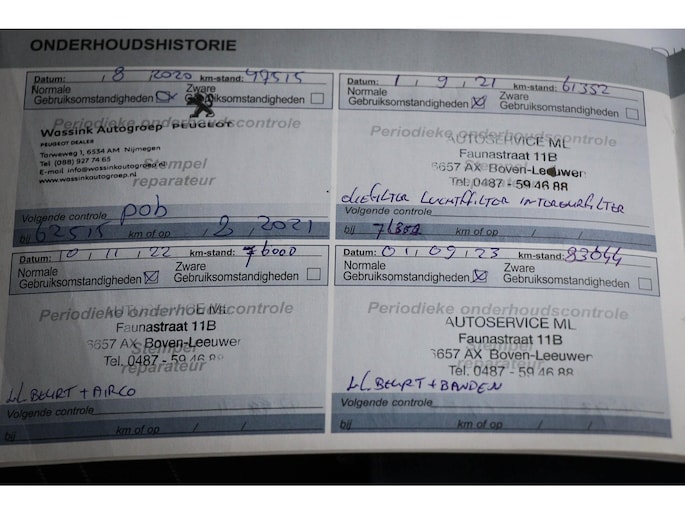 ONDERHOUDSHISTORIE
Datum: , 8 2020 km-stand: 47515
Normale Gebruiksomstandigheden
Zware Gebruiksomstandigheden
Periodieke onderhoudscontrole
Wassink Autogroep PEUGEOT
PEUGEOT DEALER
Tarweweg 1, 6534 AM Nijmegen
Tel (088) 927 74 65
E-mail info@wassinkautogroep.nl
www.wassinkautogroep.nl
Stempel
reparateur
Volgende controle pob
bij 62515 km of op / 8, 2021
Datum: 1, 9, 21 km-stand: 61352
Normale Gebruiksomstandigheden
Zware Gebruiksomstandigheden
Periodieke onderhoudscontrole
AUTOSERVICE ML
Faunastraat 11B
6657 AX Boven-Leeuwen
Tel. 0487 - 59 46 88
Stempel
reparateur
OLIEFILTER LUCHTFILTER INTERIEURFILTER
Volgende controle
bij 71352 km of op / /
Datum: 10, 11, 22 km-stand: 76000
Normale Gebruiksomstandigheden
Zware Gebruiksomstandigheden
Periodieke onderhoudscontrole
AUTOSERVICE ML
Faunastraat 11B
6657 AX Boven-Leeuwen
Stempel
Tel. 0487 - 59 46 88
reparateur
BEURT + AIRCO
Volgende controle
bij km of op / /
Datum: 01, 09, 23 km-stand: 83644
Normale Gebruiksomstandigheden
Zware Gebruiksomstandigheden
Periodieke onderhoudscontrole
AUTOSERVICE ML
Faunastraat 11B
6657 AX Boven-Leeuwen
Stempel
Tel. 0487 - 59 46 88
reparateur
BEURT + BANDEN
Volgende controle
bij km of op / /